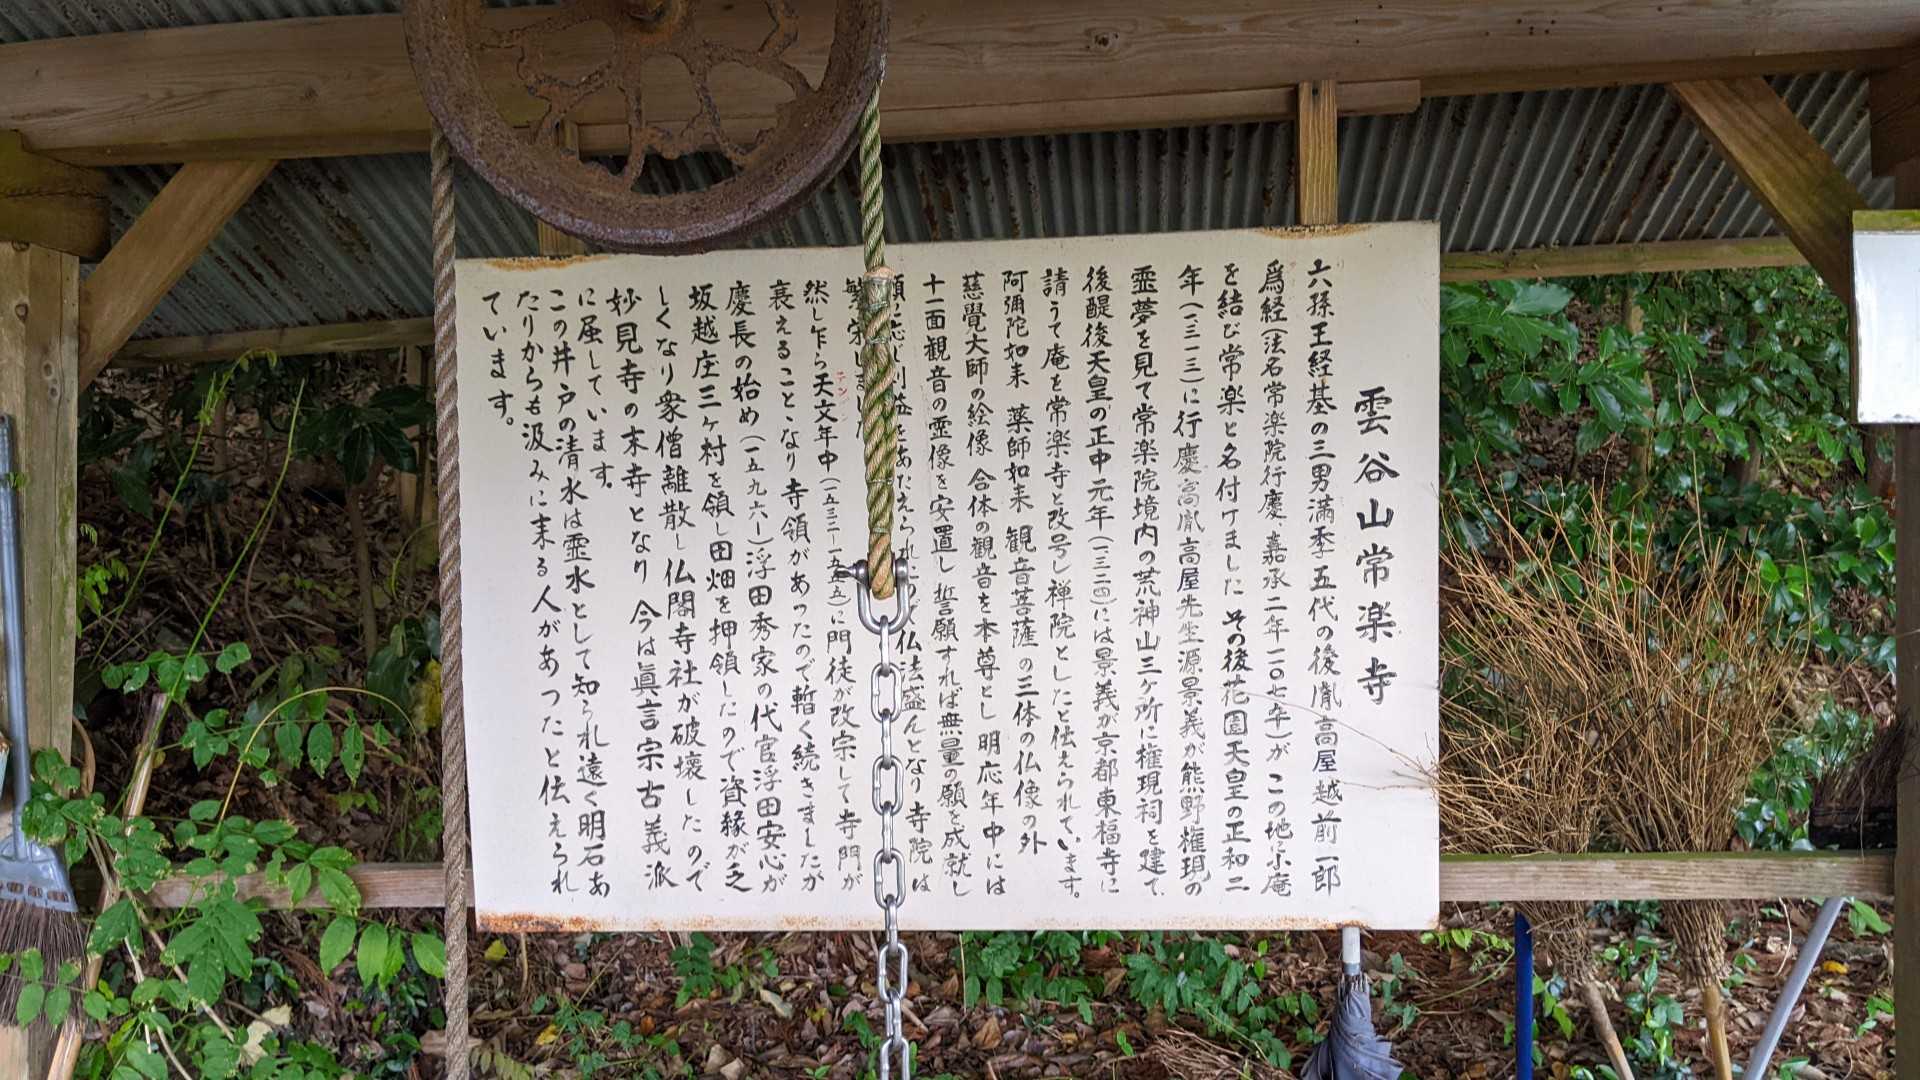 雲谷山常楽寺
六孫王経基の三男満季五代の後胤高屋越前一郎
爲経(法名常楽院行慶、嘉承二年一一〇七年)がこの地に小庵
を結び常楽と名付けました その後花園天皇の正和二
年(一三一三)に行慶高胤高屋先生源景義が熊野権現の
霊夢を見て常楽院境内の荒神山三ケ所に権現祠を建て
後醍後天皇の正中元年(一三二四)には景義が京都東福寺に
請うて庵を常楽寺と改号し禅院としたと伝えられています。
阿彌陀如来 薬師如来 観音菩薩の三体の仏像の外
慈覺大師の絵像 合体の観音を本尊とし明応年中には
十一面観音の霊像を安置し誓願すれば無量の願を成就し
願に応じ利益をあたえられ 仏法盛んとなり寺院は
繁栄しました
然し乍ら天文年中(一五三二ー一五五五)に門徒が改宗して寺門が
衰えることゝなり寺領があったので暫く続きましたが
慶長の始め(一五九六ー)浮田秀家の代官浮田安心が
坂越庄三ヶ村を領し田畑を押領したので資縁が乏
しくなり衆僧離散し仏閣寺社が破壊したので
妙見寺の末寺となり 今は眞言宗古義派
に属しています。
この井戸の清水は霊水として知られ遠く明石あ
たりからも汲みに来る人があったと伝えられ
ています。